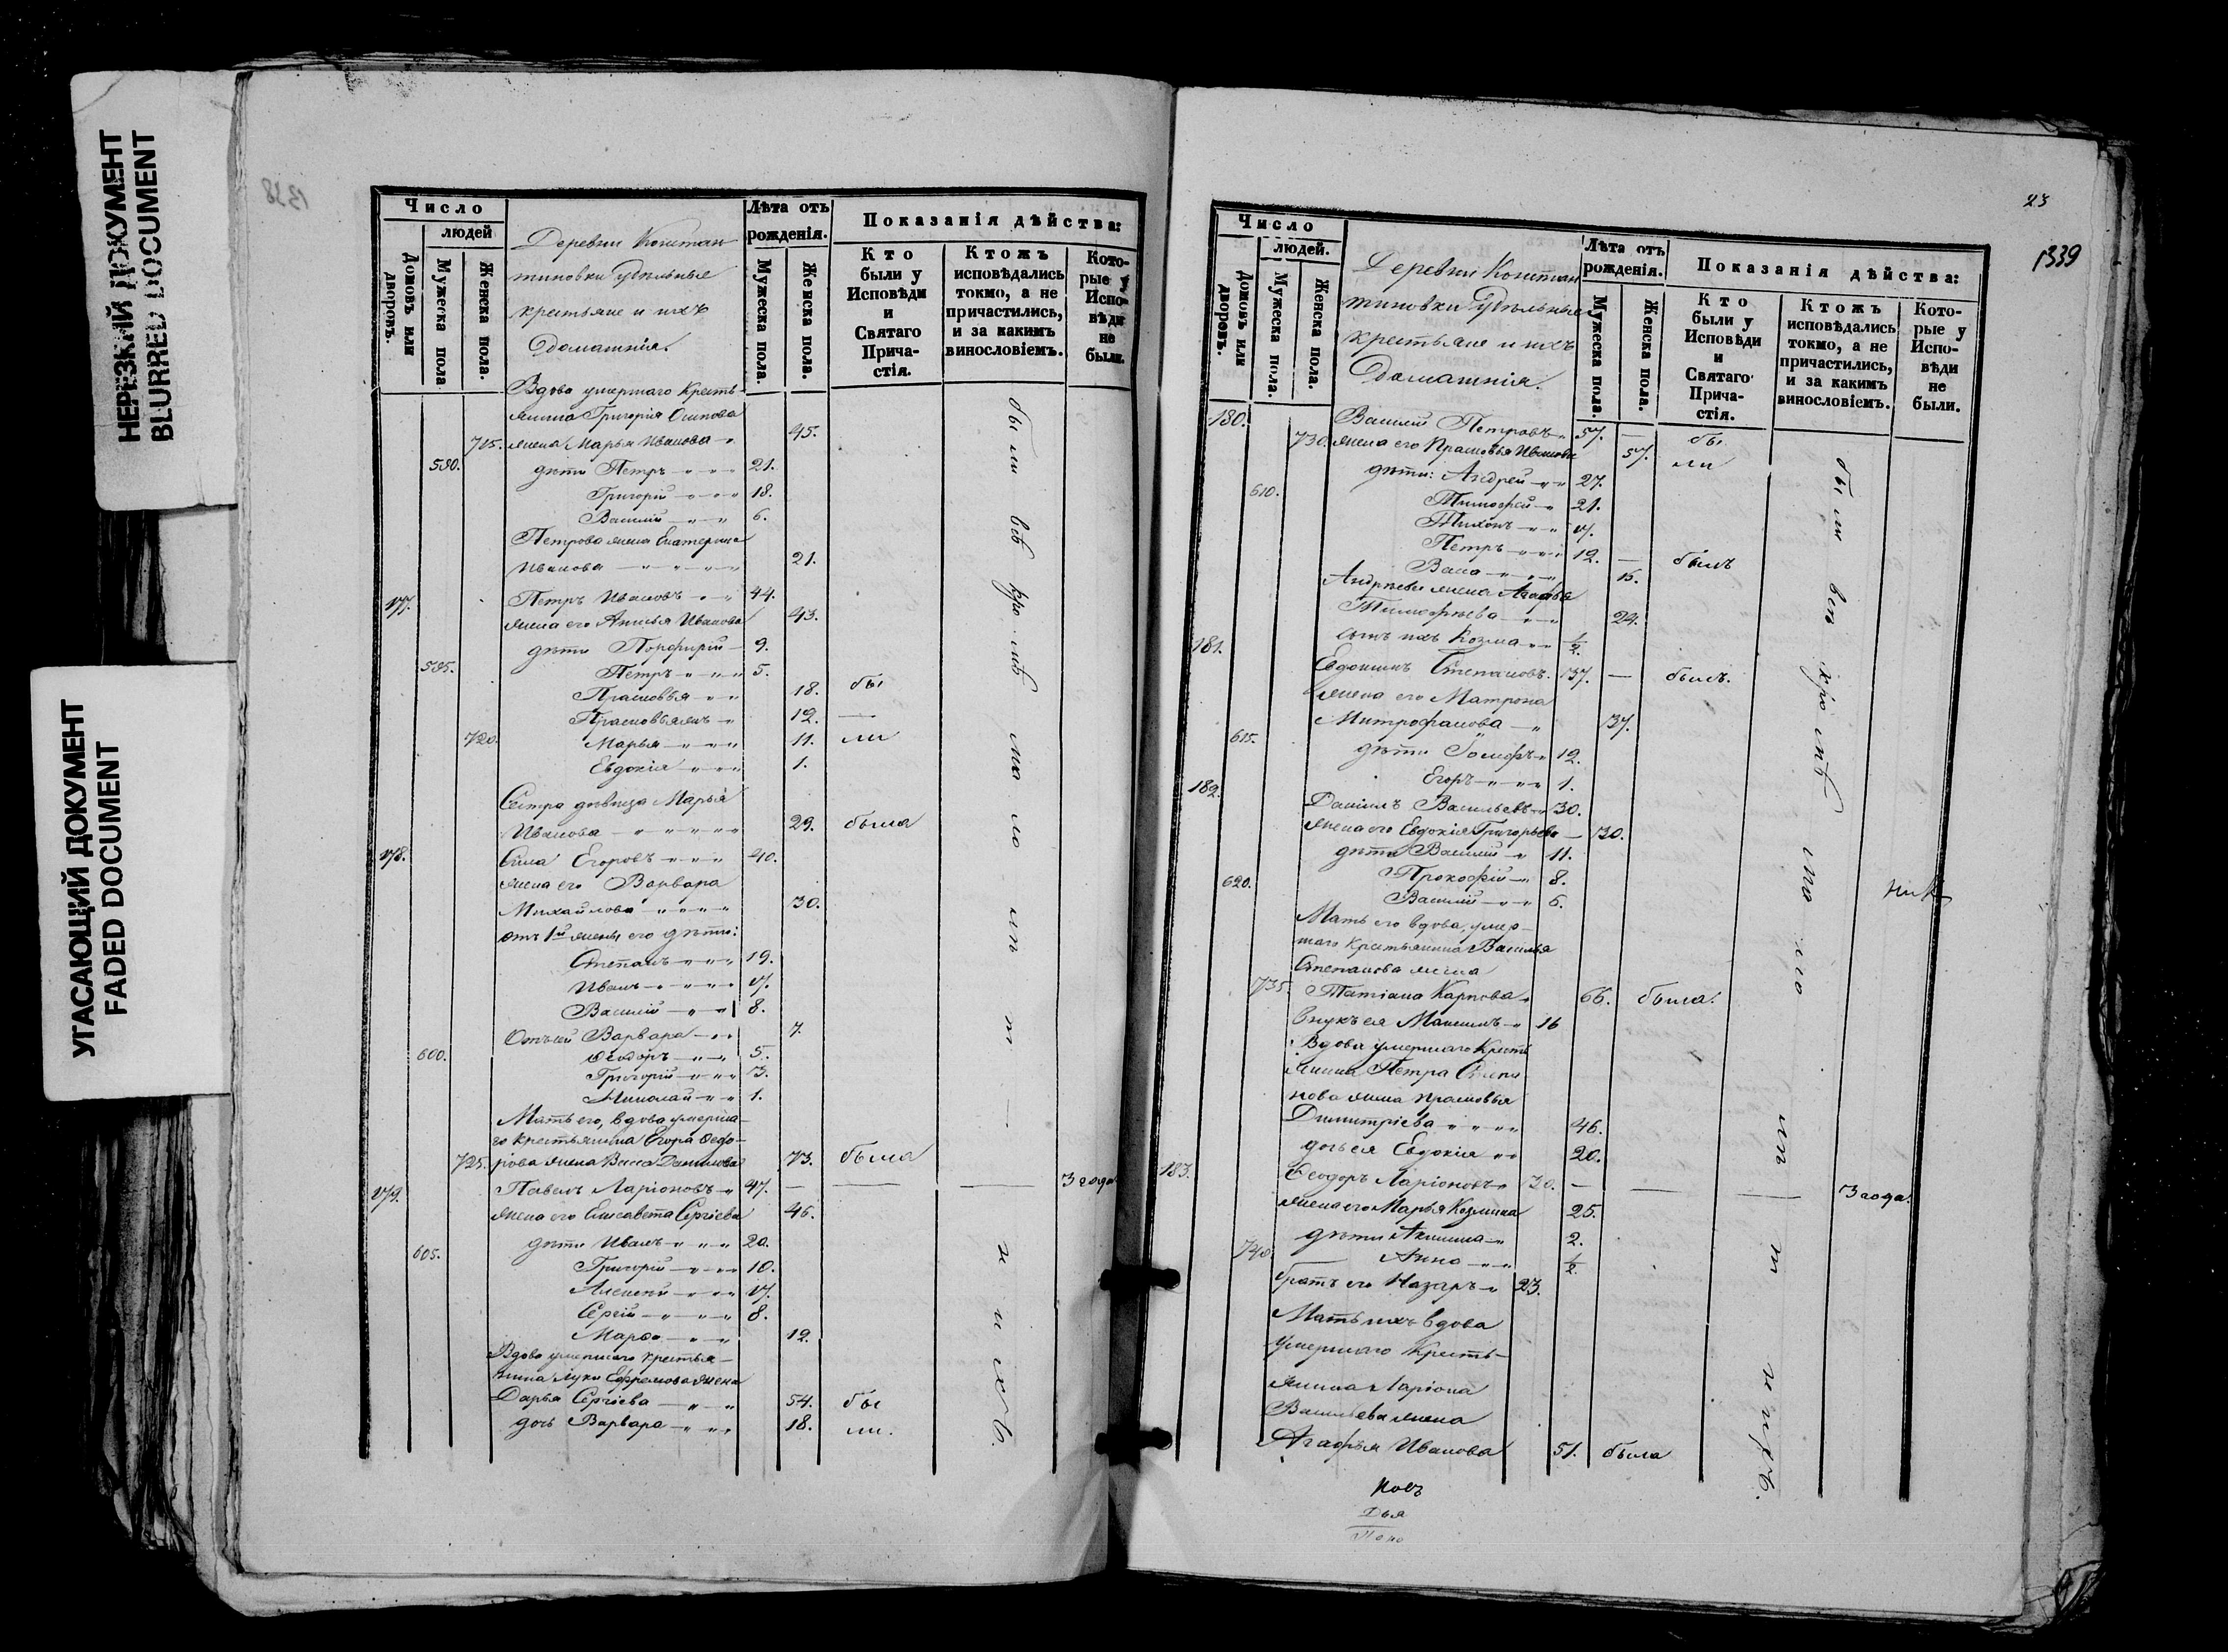 НЕРЕЗКИЙ ДОКУМЕНТ
BLURRED DOCUMENT
УГАСАЮЩИЙ ДОКУМЕНТ
FADED DOCUMENT
1338
Число
людей
Домовъ или дворовъ.
Мужеска пола
Женска пола.
Деревни Констан
тиновки Удѣльные
крестьяне и ихъ
домашнія.
Лѣта отъ рожденія.
Мужеска пола.
Женска пола.
Показанія дѣйства:
Кто были у Исповѣди и Святаго Прича-стія.
Ктожъ исповѣдались токмо, а не причастились, и за какимъ винословіемъ.
Кото-рые у Испо-вѣди не были.
Вдова умершаго кресть-
янина Григорія Осипова
715. жена Марья Иванова 45.
590. дѣти Петръ 21.
Григорій 18.
Василій 6.
Петрова жена Екатерина
Иванова 21.
177. Петръ Ивановъ 44.
жена его Анисья Иванова 43.
дѣти Порфирій 9.
595. Петръ 5.
Прасковья 18. бы
Прасковьяжъ 12. —
720. Марья 11. ли
Евдокія 1.
Сестра дѣвица Марья
Иванова 29. была
178. Сила Егоровъ 40.
жена его Варвара
Михайлова 30.
отъ 1й жены его дѣти:
Степанъ 19.
Иванъ 17.
Василій 8.
Отъ сей Варвара 7.
600. Ѳеодоръ 5.
Григорій 3.
Николай 1.
Мать его, вдова умерша-
го крестьянина Егора Ѳедо-
725. рова жена Васса Данилова 73. была
179. Павелъ Ларіоновъ 47. — — — 3 года
жена его Елисавета Сергіева 46.
605. дѣти Иванъ 20.
Григорій 10.
Алексѣй 17.
Сергій 8.
Марѳа 12.
Вдова умершаго крестья-
нина Луки Ефремова жена
Дарья Сергіева 54. бы
дочь Варвара 18. ли.
были всѣ кро мѣ
23
1339
Число
людей.
Домовъ или дворовъ.
Мужеска пола.
Женска пола.
Деревни Констан
тиновки Удѣльные
крестьяне и ихъ
домашнія.
Лѣта отъ рожденія.
Мужеска пола.
Женска пола.
Показанія дѣйства:
Кто были у Исповѣди и Святаго Прича-стія.
Ктожъ исповѣдались токмо, а не причастились, и за какимъ винословіемъ.
Кото-рые у Испо-вѣди не были.
180. Василій Петровъ 57. — бы
730. жена его Прасковья Иванова 57. ли
дѣти: Андрей 27.
610. Тимофей 21.
Тихонъ 17.
Петръ 12. — былъ
Васса 15.
Андреева жена Агафья
Тимофѣева 24.
сынъ ихъ Козма ½
181. Евдокимъ Степановъ 37. — былъ.
жена его Матрона
Митрофанова 37.
615. дѣти Іосифъ 12.
Егоръ 1.
182. Даніилъ Васильевъ 30.
жена его Евдокія Григорьева 30.
дѣти Василій 11.
Прокофій 8.
620. Василій 6.
Мать его вдова, умер-
шаго крестьянина Василья
Степанова жена
735. Татіана Карпова 66. была.
Внукъ ея Максимъ 16
Вдова умершаго кресть
янина Петра Степа
нова жена Прасковья
Димитріева 46.
дочь ея Евдокія 20.
183. Ѳеодоръ Ларіоновъ 30. — — — 3 года.
жена его Марья Козмина 25.
дѣти Акилина 2.
740. Анна ½
братъ его Назаръ 23.
Мать ихъ вдова
умершаго кресть-
янина Ларіона
Васильева жена
Агафья Иванова 51. была
были всѣ кро мѣ